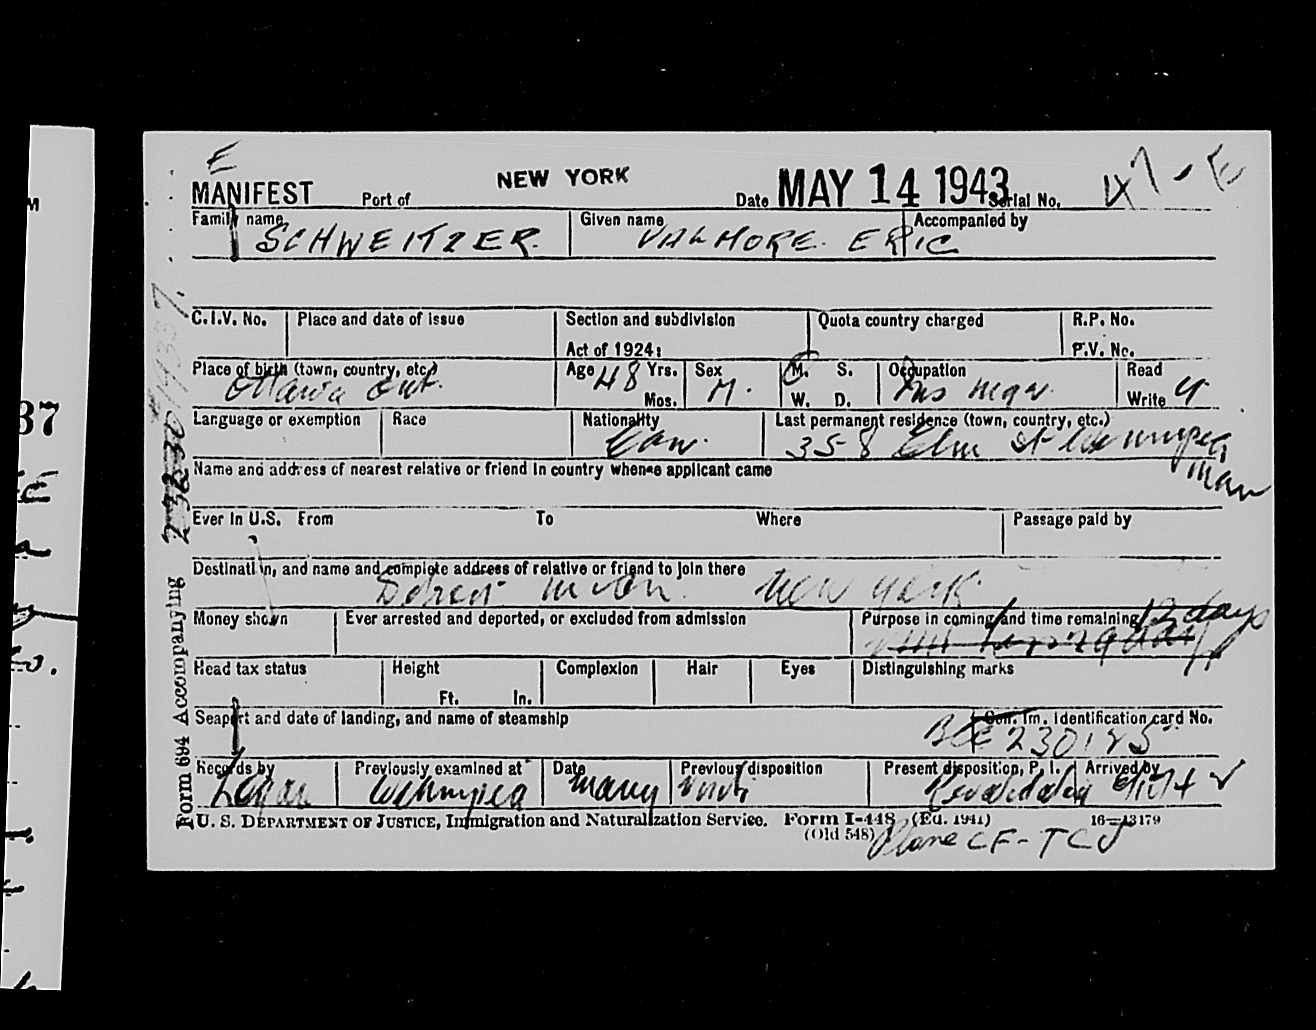 E
MANIFEST Port of NEW YORK Date MAY 14 1943 Serial No. 47-E
Family name Given name Accompanied by
SCHWEITZER. VALMORE. ERIC
C.I.V. No. Place and date of issue Section and subdivision Quota country charged R.P. No.
Act of 1924: P.V. No.
Place of birth (town, country, etc.) Age 48 Yrs. Sex M. S. Occupation Read
Ottawa Ont. Mos. M. W. D. Ins mgr. Write
Language or exemption Race Nationality Last permanent residence (town, country, etc.)
Can. 358 Elm St Winnipeg
Man
Name and address of nearest relative or friend in country whence applicant came
Ever in U.S. From To Where Passage paid by
Destination, and name and complete address of relative or friend to join there
Detroit Mich. New York.
Money shown Ever arrested and deported, or excluded from admission Purpose in coming and time remaining 12 days
Head tax status Height Complexion Hair Eyes Distinguishing marks
Ft. In.
Seaport and date of landing, and name of steamship Con. Im. Identification card No.
230185
Records by Previously examined at Date Previous disposition Present disposition, P. I. Arrived by
Winnipeg
U. S. DEPARTMENT OF JUSTICE, Immigration and Naturalization Service. Form I-448 (Ed. 1941) 16—13179
(Old 548) Plane CF-TCJ
Form 694 Accompanying
37